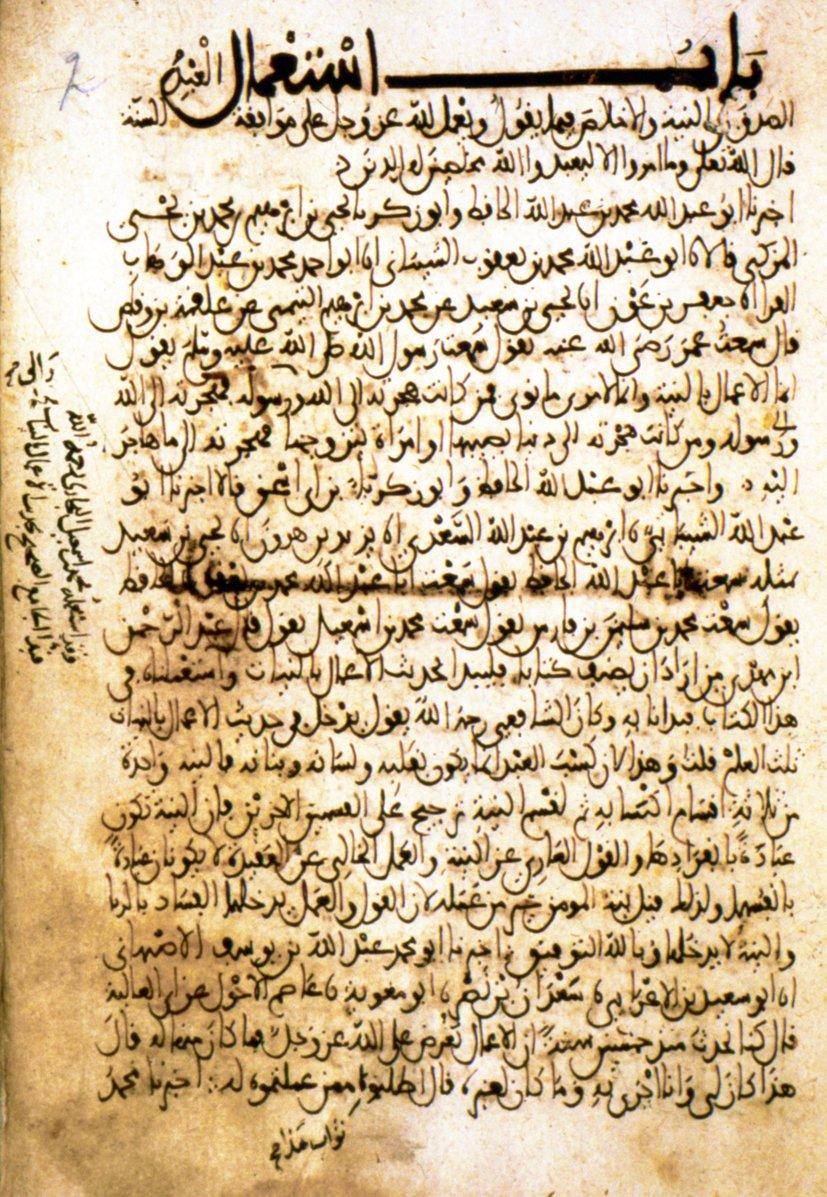 باب استعمال العبد
الصدق والنية والاخلاص فيما يقول ويعمل لله عز وجل على موافقة السنة
قال الله تعلى وما امروا الا ليعبدوا الله مخلصين له الدين
اخبرنا ابو عبد الله محمد بن عبد الله الحافظ وابو زكريا يحيى بن ابرهيم بن محمد بن يحيى
المزكي قالا انا ابو عبد الله محمد بن يعقوب الشيباني انا ابو احمد محمد بن عبد الوهاب
الفرا انا جعفر بن عون انا يحيى بن سعيد عن محمد بن ابرهيم التيمي عن علقمة بن وقاص
قال سمعت عمر رضي الله عنه يقول سمعت رسول الله صلى الله عليه وسلم يقول
انما الاعمال بالنية وانما لامرئ ما نوى فمن كانت هجرته الى الله ورسوله فهجرته الى الله
والى رسوله ومن كانت هجرته الى دنيا يصيبها او امراة يتزوجها فهجرته الى ما هاجر
اليه واخبرنا ابو عبد الله الحافظ وابو زكريا بن ابي اسحق قالا اخبرنا ابو
عبد الله الشيباني ابرهيم بن عبد الله السعدي انا يزيد بن هرون انا يحيى بن سعيد
بمثله سمعت ابا عبد الله الحافظ يقول سمعت ابا عبد الله محمد بن يعقوب الحافظ
يقول سمعت محمد بن سليمن بن فارس يقول سمعت محمد بن اسمعيل يقول قال عبد الرحمن
ابن مهدي من اراد ان يصنف كتابا فليبدا بحديث الاعمال بالنيات واستعملناه في
هذا الكتاب فبدانا به وكان الشافعي رحمه الله يقول يدخل في حديث الاعمال بالنيات
ثلث العلم قلت وهذا لان كسب العبد انما يكون بقلبه ولسانه وبنانه فالنية واحدة
من ثلاثة اقسام اكتسابه ثم لقسم النية ترجيح على القسمين الاخرين فان النية تكون
عبادة بانفرادها والقول العاري عن النية والعمل الخالي عن العقيدة لا يكونان عبادة
بانفسهما ولذلك قيل نية المومن خير من عمله لان القول والعمل يدخلهما الفساد بالريا
والنية لا يدخلها وبالله التوفيق اخبرنا ابو محمد عبد الله بن يوسف الاصبهاني
انا ابو سعيد بن الاعرابي سعدان بن نصر ابو معوية عاصم الاحول عن ابي العالية
قال كنا نحدث منذ خمسين سنة ان الاعمال تعرض على الله عز وجل فما كان منها له قال
هذا كان لي وانا اجزي به وما كان لغيره قال اطلبوا ثواب هذا ممن عملتموه له اخبرنا محمد
ثواب هذا